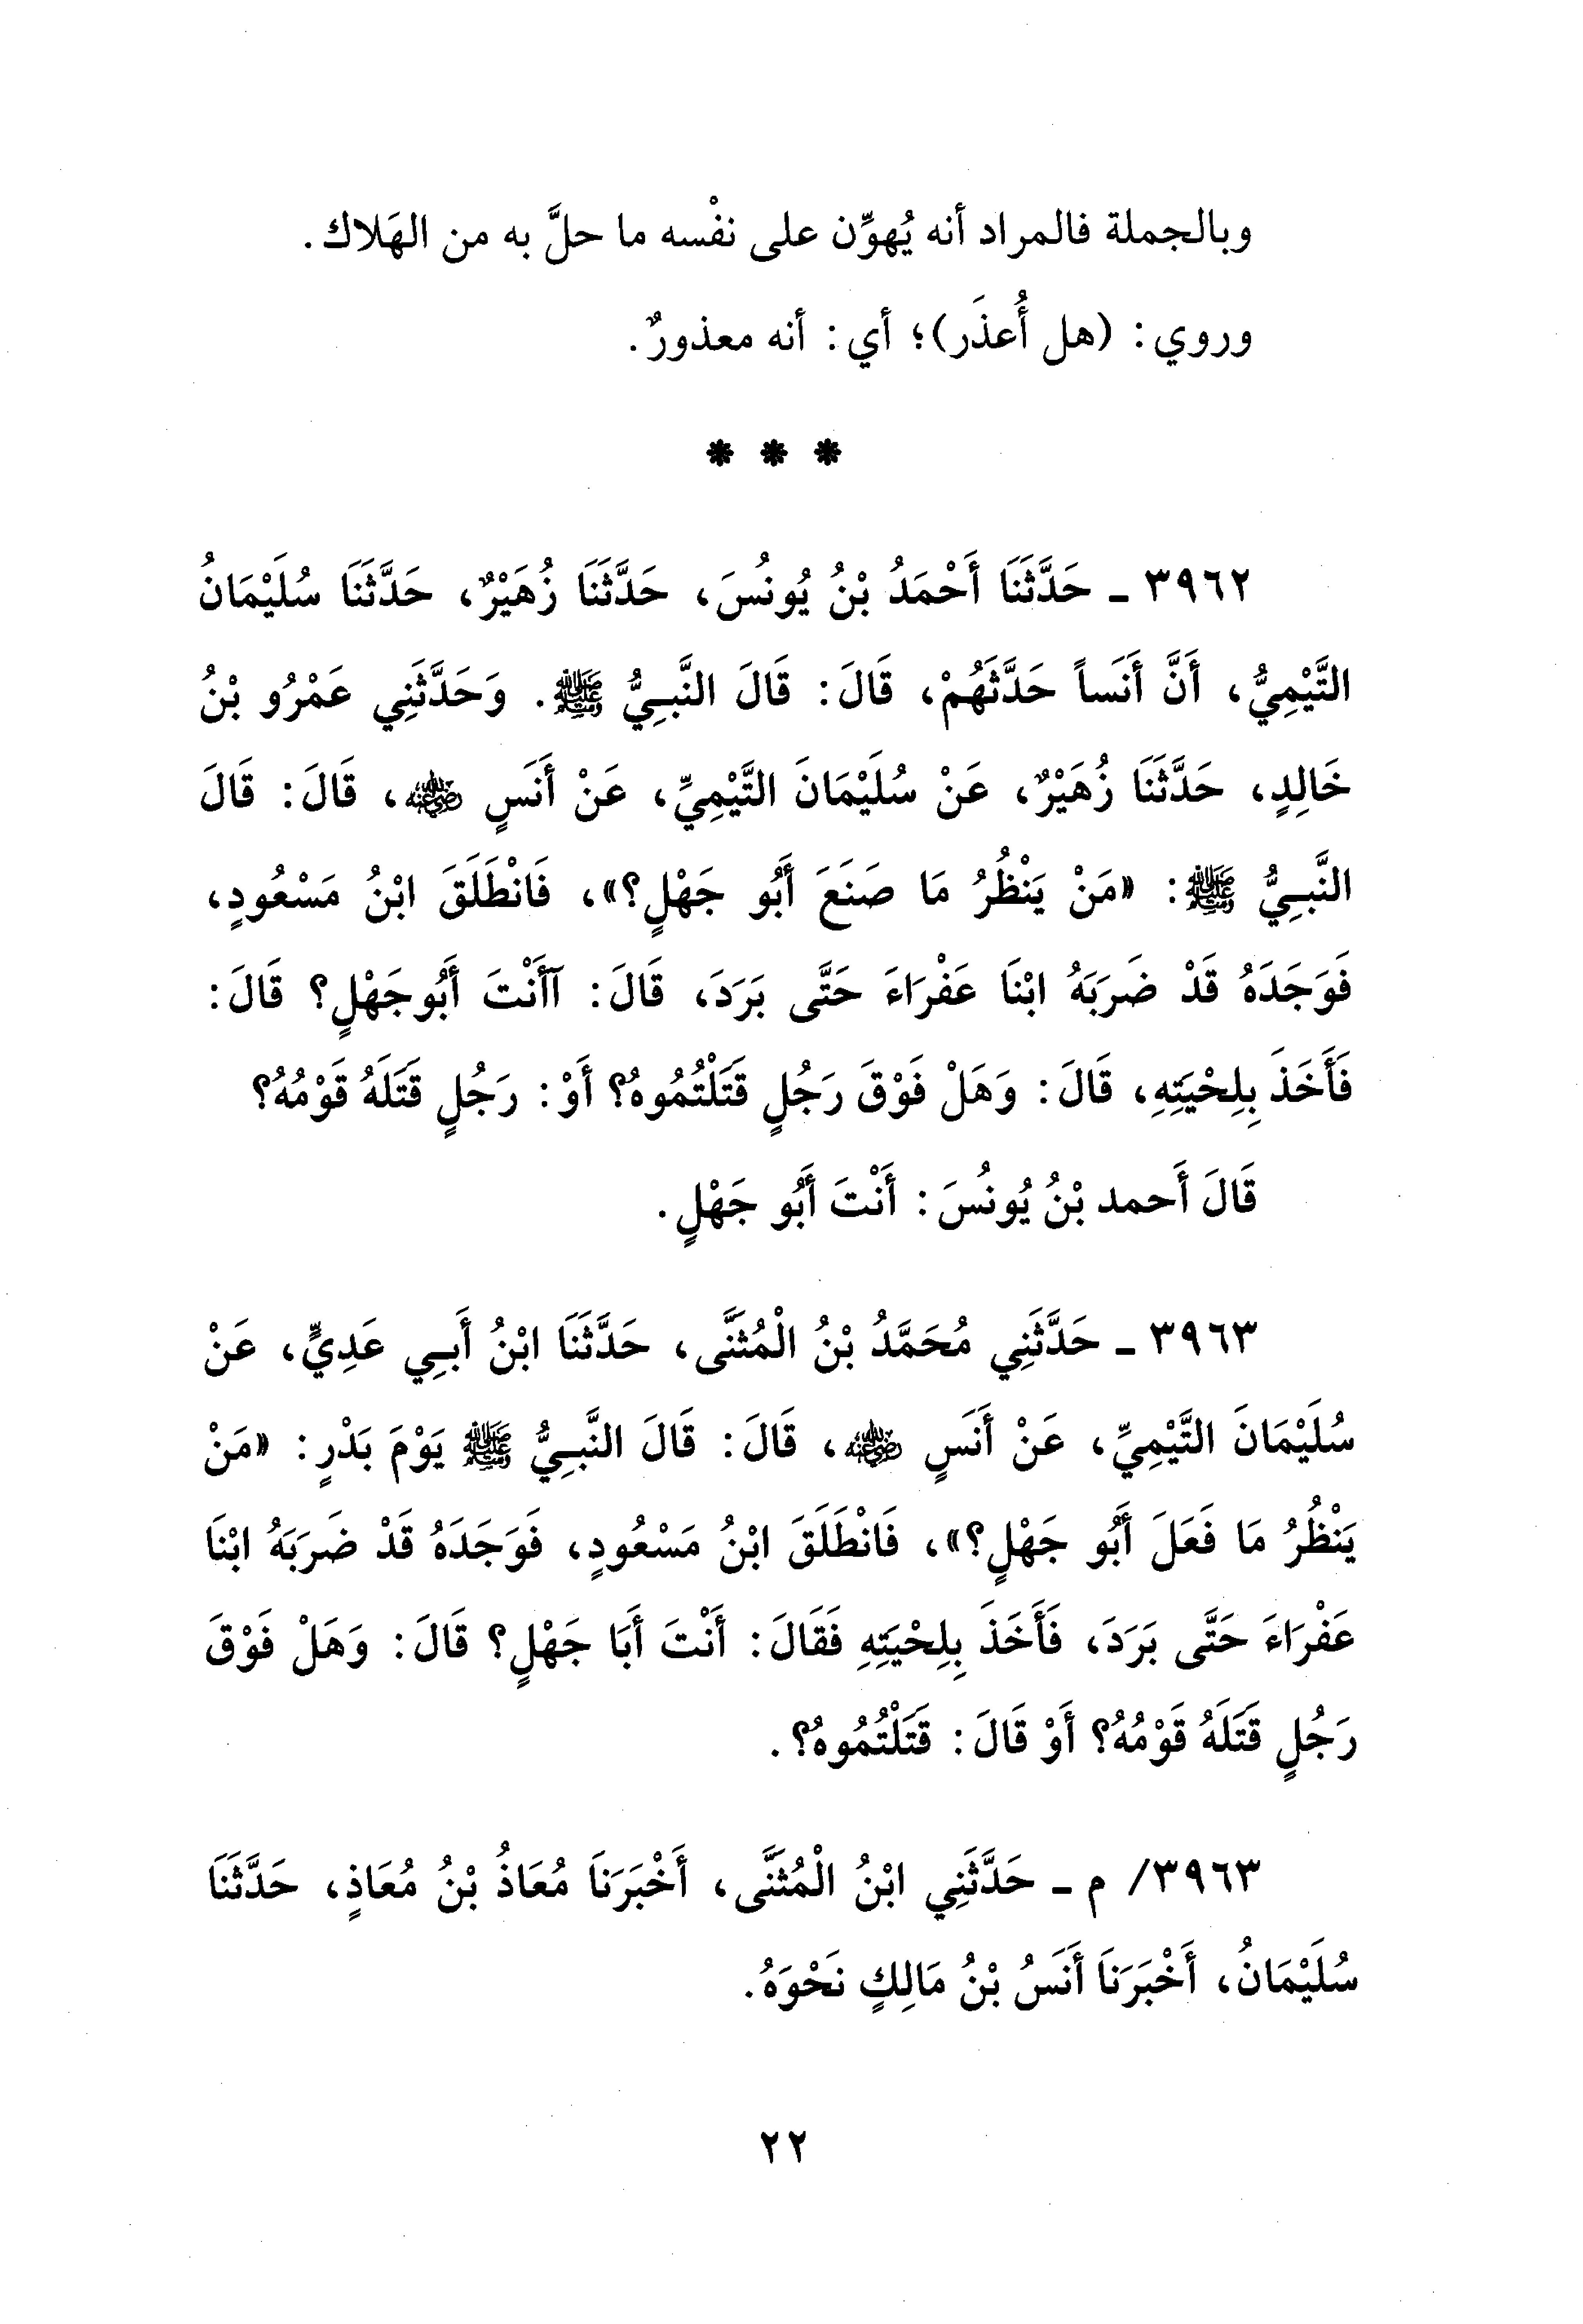 وبالجملة فالمراد أنه يُهوِّن على نفْسه ما حلَّ به من الهَلاك.
وروي: (هل أُعذَر)؛ أي: أنه معذورٌ.
* * *
٣٩٦٢ ـ حَدَّثَنَا أَحْمَدُ بْنُ يُونُسَ، حَدَّثَنَا زُهَيْرٌ، حَدَّثَنَا سُلَيْمَانُ
التَّيْمِيُّ، أَنَّ أَنَساً حَدَّثَهُمْ، قَالَ: قَالَ النَّبِيُّ ﷺ. وَحَدَّثَنِي عَمْرُو بْنُ
خَالِدٍ، حَدَّثَنَا زُهَيْرٌ، عَنْ سُلَيْمَانَ التَّيْمِيِّ، عَنْ أَنَسٍ رضي الله عنه، قَالَ: قَالَ
النَّبِيُّ ﷺ: «مَنْ يَنْظُرُ مَا صَنَعَ أَبُو جَهْلٍ؟»، فَانْطَلَقَ ابْنُ مَسْعُودٍ،
فَوَجَدَهُ قَدْ ضَرَبَهُ ابْنَا عَفْرَاءَ حَتَّى بَرَدَ، قَالَ: آأَنْتَ أَبُوجَهْلٍ؟ قَالَ:
فَأَخَذَ بِلِحْيَتِهِ، قَالَ: وَهَلْ فَوْقَ رَجُلٍ قَتَلْتُمُوهُ؟ أَوْ: رَجُلٍ قَتَلَهُ قَوْمُهُ؟
قَالَ أَحمد بْنُ يُونُسَ: أَنْتَ أَبُو جَهْلٍ.
٣٩٦٣ ـ حَدَّثَنِي مُحَمَّدُ بْنُ الْمُثَنَّى، حَدَّثَنَا ابْنُ أَبِي عَدِيٍّ، عَنْ
سُلَيْمَانَ التَّيْمِيِّ، عَنْ أَنَسٍ رضي الله عنه، قَالَ: قَالَ النَّبِيُّ ﷺ يَوْمَ بَدْرٍ: «مَنْ
يَنْظُرُ مَا فَعَلَ أَبُو جَهْلٍ؟»، فَانْطَلَقَ ابْنُ مَسْعُودٍ، فَوَجَدَهُ قَدْ ضَرَبَهُ ابْنَا
عَفْرَاءَ حَتَّى بَرَدَ، فَأَخَذَ بِلِحْيَتِهِ فَقَالَ: أَنْتَ أَبَا جَهْلٍ؟ قَالَ: وَهَلْ فَوْقَ
رَجُلٍ قَتَلَهُ قَوْمُهُ؟ أَوْ قَالَ: قَتَلْتُمُوهُ؟.
٣٩٦٣/ م ـ حَدَّثَنِي ابْنُ الْمُثَنَّى، أَخْبَرَنَا مُعَاذُ بْنُ مُعَاذٍ، حَدَّثَنَا
سُلَيْمَانُ، أَخْبَرَنَا أَنَسُ بْنُ مَالِكٍ نَحْوَهُ.
٢٢